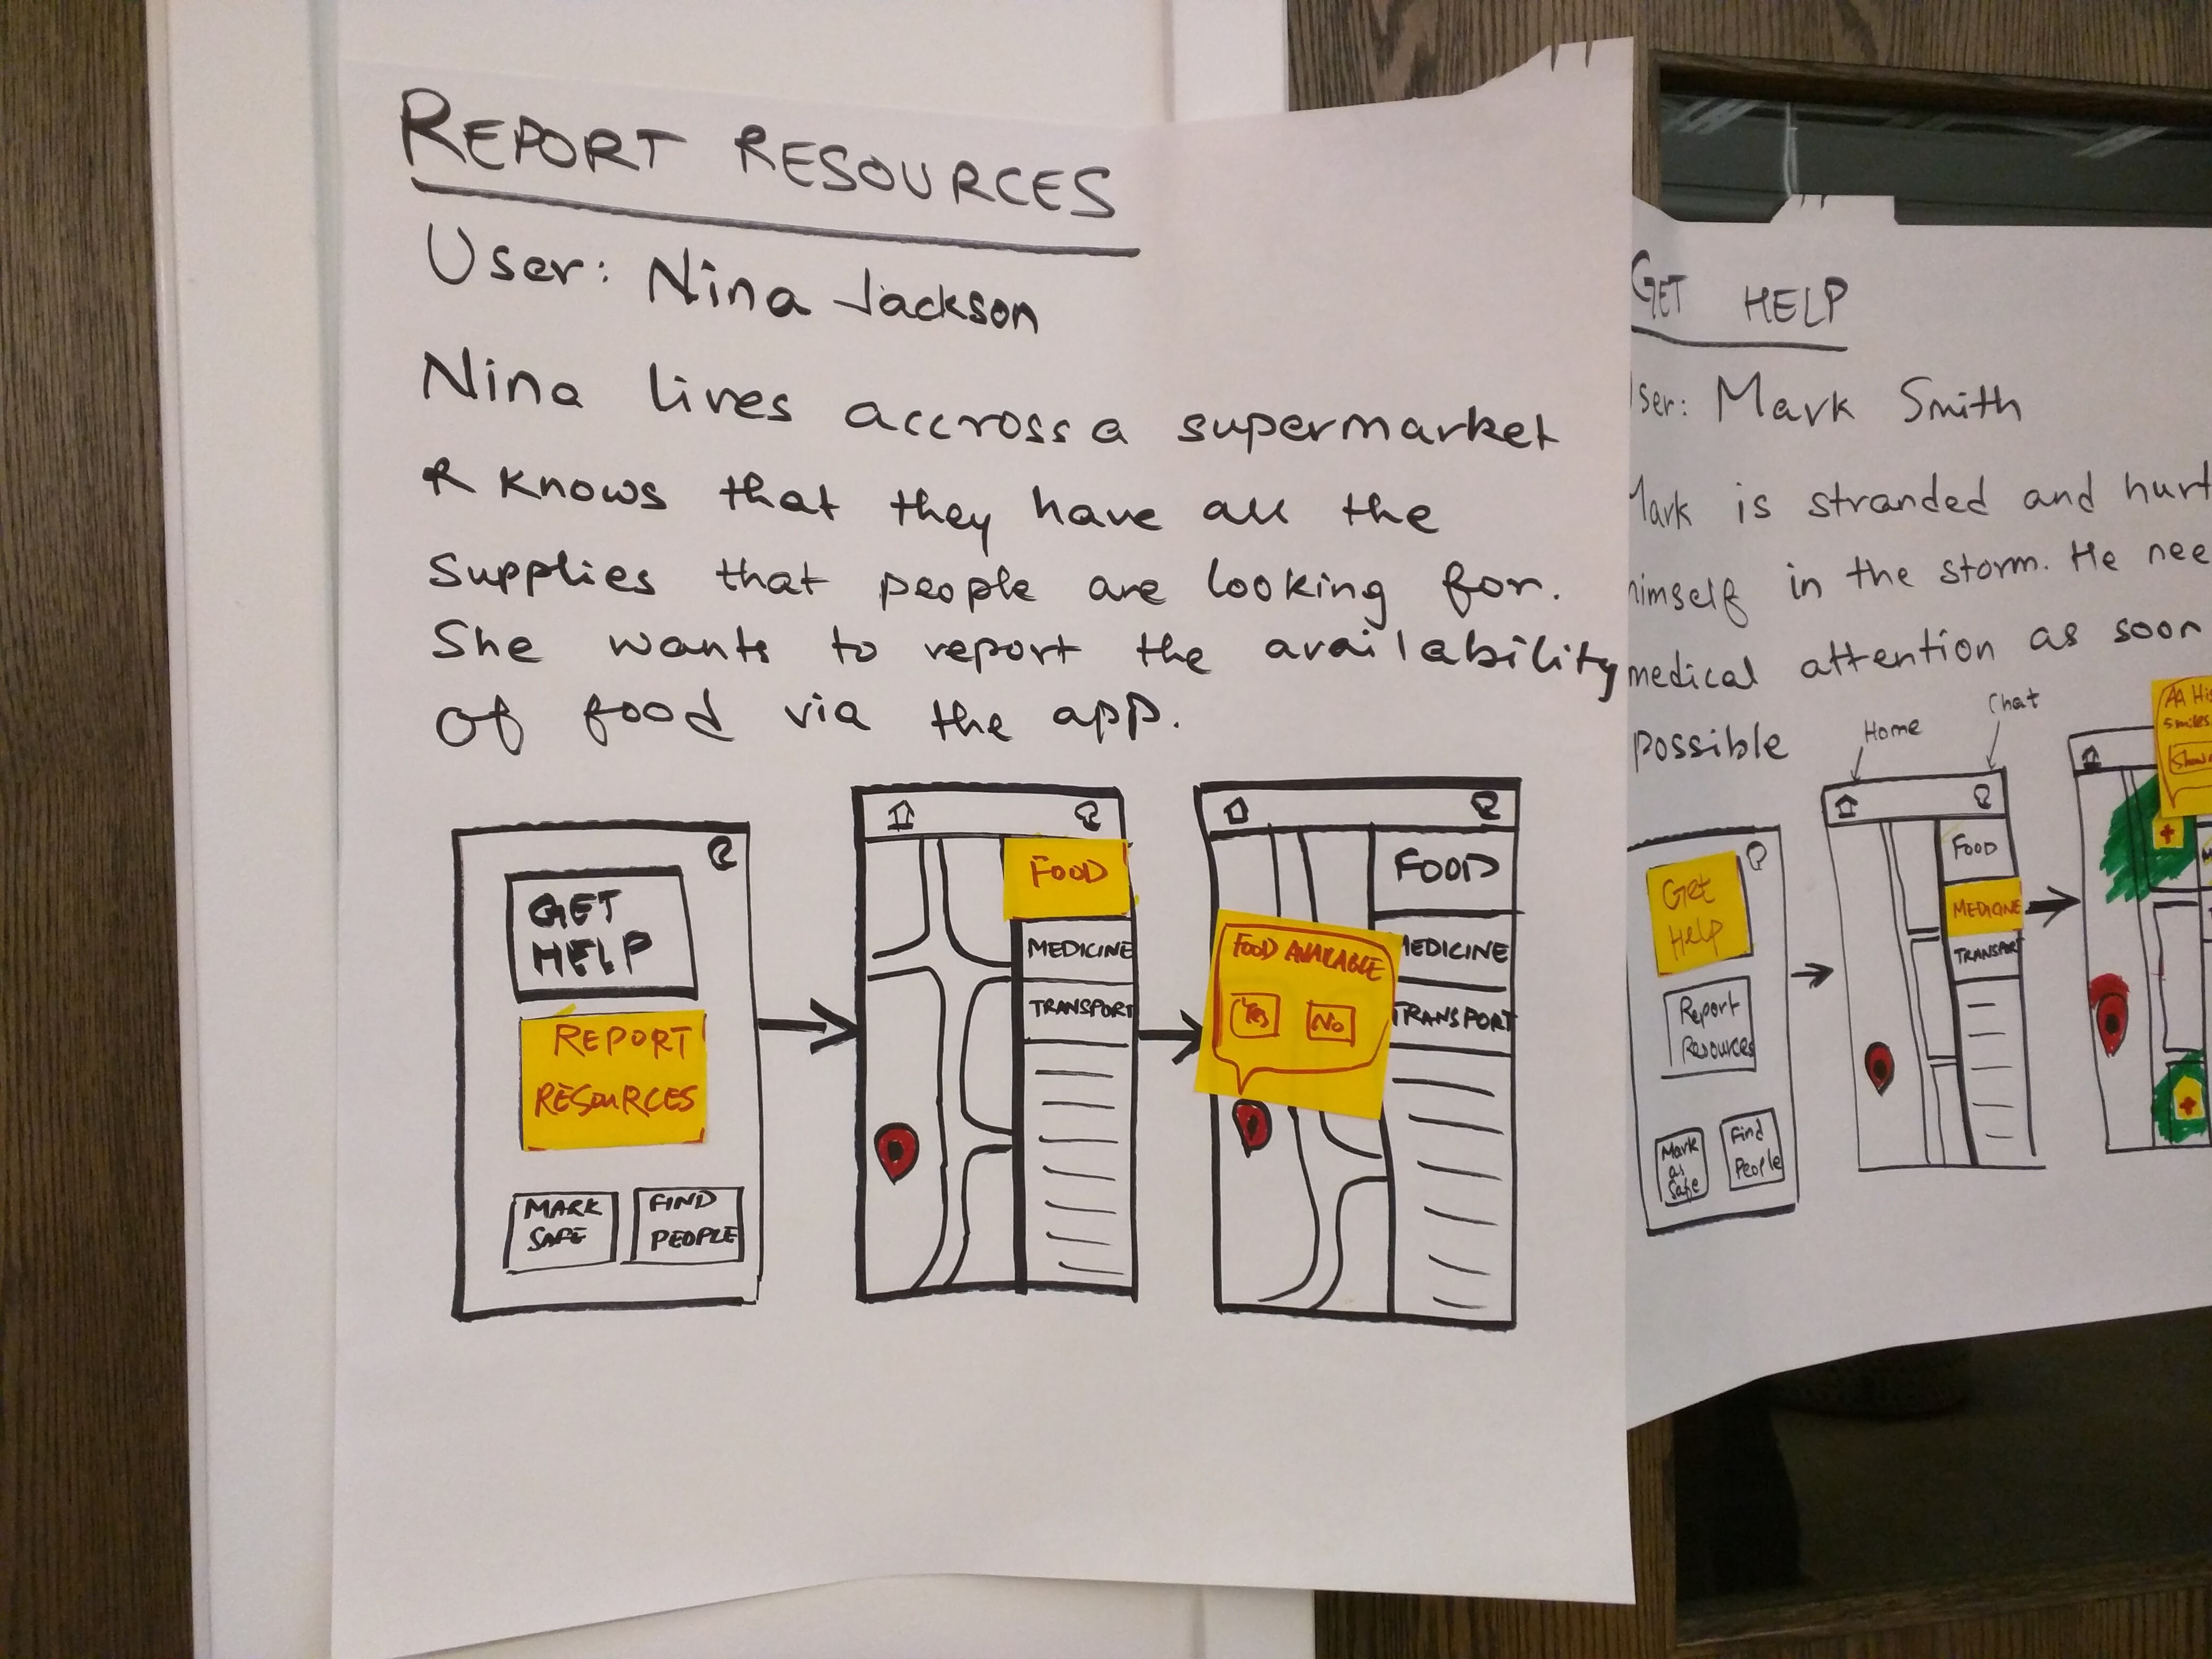 REPORT RESOURCES
User: Nina Jackson
Nina lives accross a supermarket
& knows that they have all the
supplies that people are looking for.
She wants to report the availability
of food via the app.
GET
HELP
REPORT
RESOURCES
MARK
SAFE
FIND
PEOPLE
FOOD
MEDICINE
TRANSPORT
FOOD
FOOD AVAILABLE
Yes
No
MEDICINE
TRANSPORT
GET HELP
User: Mark Smith
Mark is stranded and hurt
himself in the storm. He
medical attention as soon
possible
Home
Chat
Get
Help
Report
Resources
Mark
as
Safe
Find
People
FOOD
MEDICINE
TRANSPORT
AA
5 miles